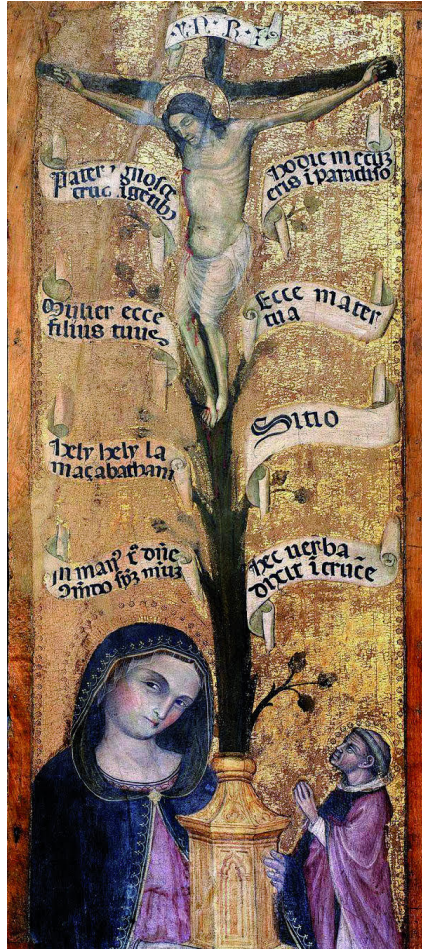 ·Y·N·R·I·
Pater ignosce
cruc igentib
hodie mecuz
eris i paradiso
Mulier ecce
filius tuus
Ecce mater
tua
hely hely la
maçabathani
Sitio
in man t dñe
spm
hec uerba
dixit i cruce